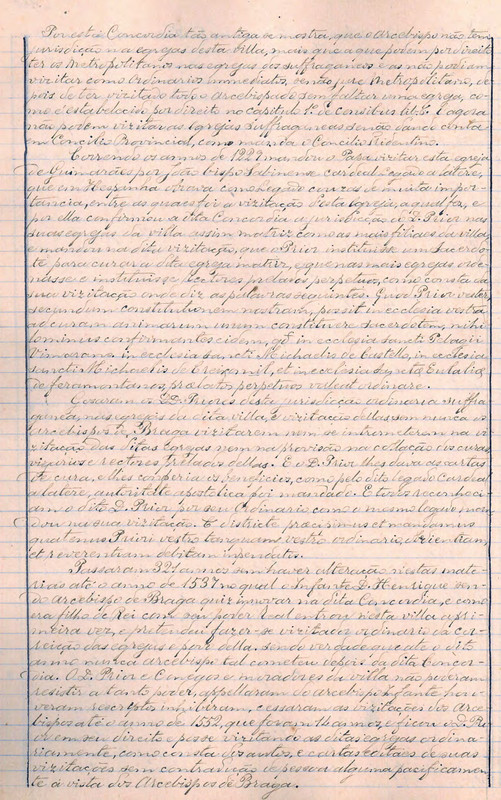 Por esta Concordia tão antiga se mostra, que o Arcebispo não tem
jurisdição na egreja desta villa, mais que a que podem por direito
ter os Metropolitanos nas egrejas dos suffraganeos e as não podiam
vizitar como Ordinarios immediatos, senão jure Metropolitano, de
pois de ter vizitado todo o Arcebispado sem faltar uma egreja, co
mo é estabelecido por direito no capitulo 1º de Censibus lib. 6. E agora
não podem vizitar as Egrejas suffraganeas senão dando conta
em Concilio Provincial, como manda o Concilio Tridentino.
Correndo os annos de 1229 mandou o Papa vizitar esta egreja
de Guimarães por João bispo Sabinense cardeal Legado a latere,
que em Hespanha estava com legação couzas de muita impor-
tancia, entre as quaes foi a vizitação desta Egreja, a qual fez, e
por ella confirmou a dita Concordia a jurisdição de D. Prior nas
suas egrejas da villa assim matriz como as mais filiaes da villa,
e mandou na dita vizitação, que o Prior instituisse um sacerdo-
te para curar a dita egreja matriz, e que nas mais egrejas orde-
nasse e instituisse Reitores prelados perpetuos, como consta da
sua vizitação onde diz as palavras seguintes. Quod Prior vester
secundum constitutionem nostram, possit in ecclesia vestra
ad curam animarum unum constituere sacerdotem, nihi
lominus confirmantes eidem, qd in ecclesia sancti Pelagii
Vimarans in ecclesia sancti Michaelis de Castello, in ecclesia
sancti Michaelis de Creixomil, et in ecclesia sancta Eulalia
de feramontanos, prælatos perpetuos valeat ordinare.
Gosaram os DD. Priores desta jurisdição ordinaria suffra
ganea, nas egrejas da dita villa, e vizitação dellas sem nunca os
arcebispos de Braga vizitarem nem se intrometerem na vi
zitação das ditas egrejas nem na provisão na collação dos curas
vigarios e rectores prelados dellas. E o D. Prior lhes dava as cartas
de cura e lhes conferia os beneficios, como pelo dito legado cardeal
a latere, autoritate apostolica foi mandado. E todos reconheci-
am o dito D. Prior por seu Ordinario como o mesmo legado man
dou na sua vizitação. Et districte præcipimus et mandamus
quatenus Priori vestro tanquam vestro ordinario, obedientiam,
et reverentiam debitam impendatis.
Passaram 321 annos sem haver alteração nestas mate-
rias até o anno de 1537 no qual o Infante D. Henrique sen-
do Arcebispo de Braga quiz innovar na dita Concordia, e como
era filho de Rei com seu poder Real entrou nesta villa a pri-
meira vez, e pretendeu fazer-se vizitador ordinario da cor-
reição das egrejas e povo della, sendo verdade que até o dito
anno nunca arcebispo tal cometeu depois da dita Concor-
dia. O D. Prior e Conegos e moradores da villa não puderam
resistir a tanto poder, appellaram do arcebispo Infante, hou-
veram rescriptos inhibiram, e cessaram as vizitações dos Arce-
bispos até o anno de 1552, que foram 14 annos, e ficou o D. Pri-
or em seu direito e posse vizitando as ditas egrejas ordina-
riamente, como consta dos autos, e cartas editaes de suas
vizitações sem contradicção de pessoa alguma pacificamen-
te á vista dos Arcebispos de Braga.